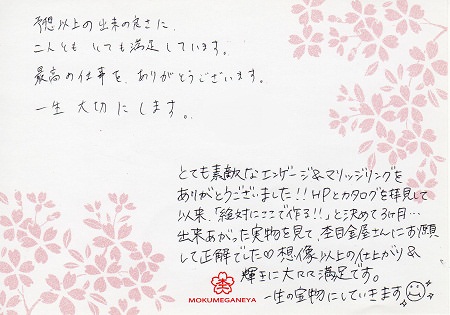 予想以上の出来の良さに、
二人とも とても満足しています。
最高の仕事を、ありがとうございます。
一生 大切にします。
とても素敵なエンゲージ&マリッジリングを
ありがとうございました!!HPとカタログを拝見して
以来、「絶対にここで作る!!」と決めて3ヶ月…
出来あがった実物を見て、杢目金屋さんにお願い
して正解でした♡想像以上の仕上がり&
輝きに大大大満足です。
一生の宝物にしていきます☺
杢
MOKUMEGANEYA